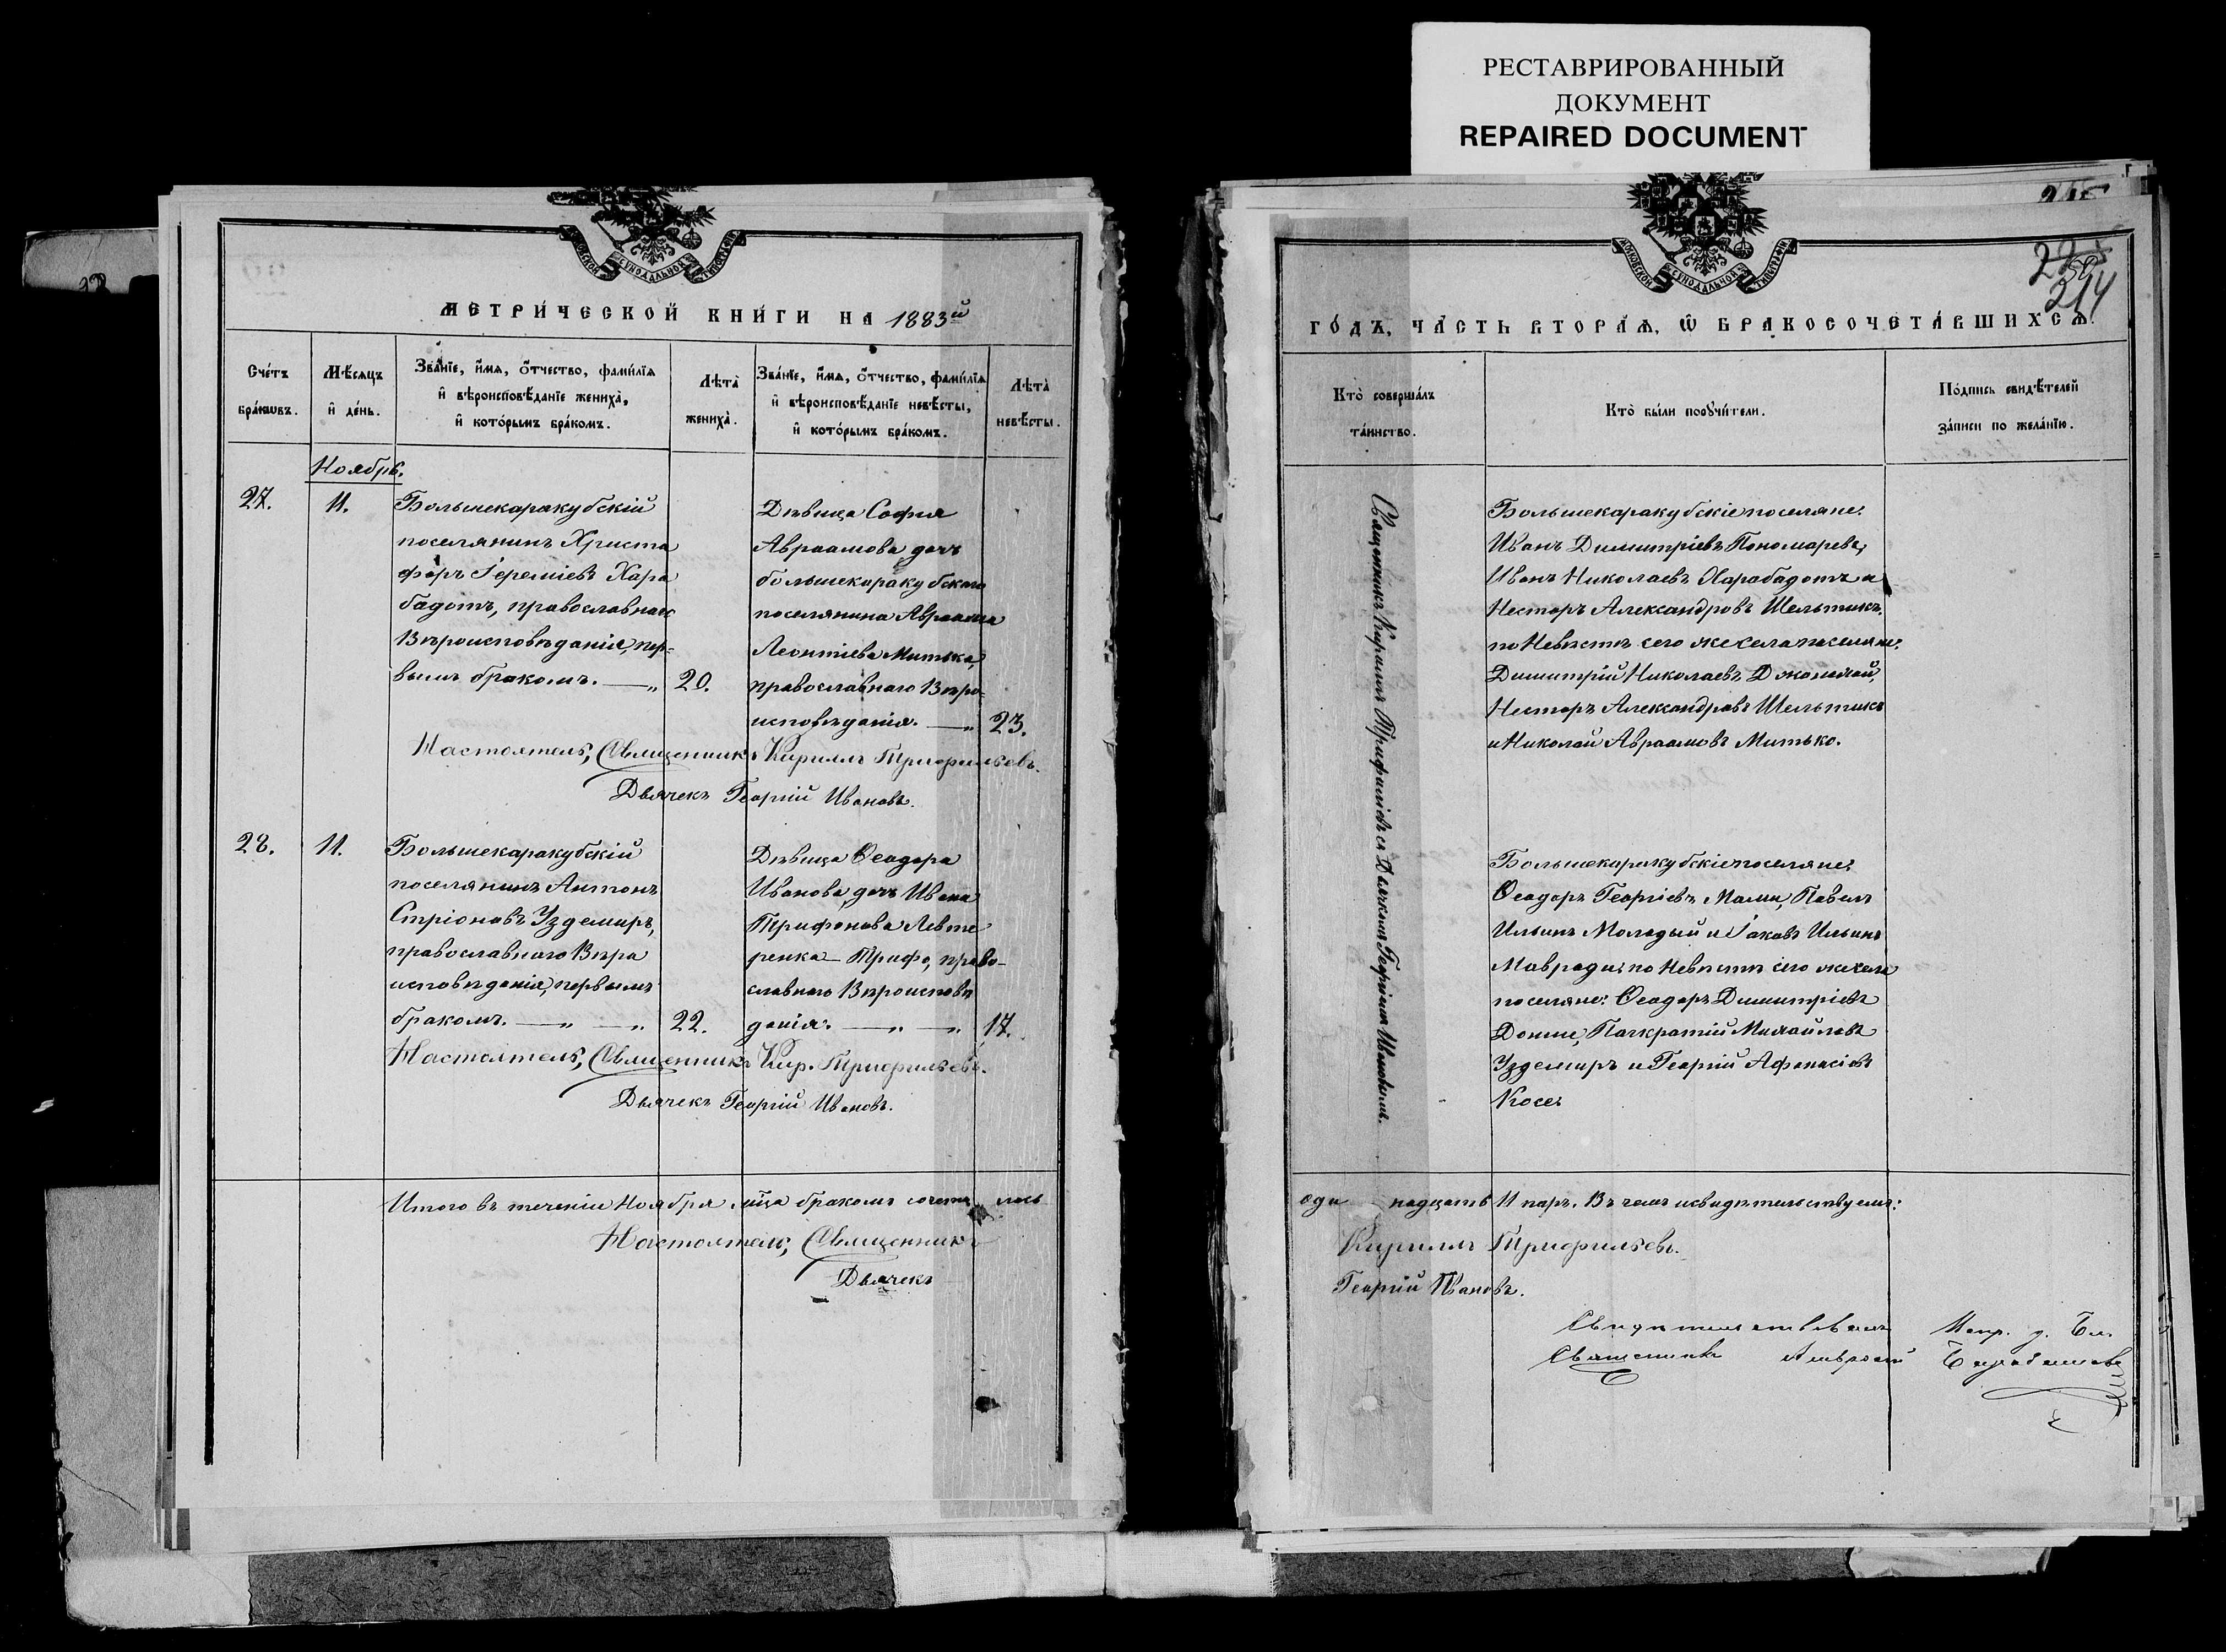 РЕСТАВРИРОВАННЫЙ
ДОКУМЕНТ
REPAIRED DOCUMENT
МОСКОВСКОЙ СѴНОДАЛЬНОЙ ТИПОГРАФІИ
МЕТРИ́ЧЕСКОЙ КНИ́ГИ НА 1883й
Сче́тъ бра́кѡвъ.
Мѣ́сяцъ и҆ де́нь.
Зва́нїе, и҆́мѧ, ѻ҆́тчество, фами́лїѧ
и҆ вѣроисповѣ́данїе жениха̀,
и҆ кото́рымъ бра́комъ.
Лѣта̀ жениха̀.
Зва́нїе, и҆́мѧ, ѻ҆́тчество, фами́лїѧ
и҆ вѣроисповѣ́данїе невѣ́сты,
и҆ кото́рымъ бра́комъ.
Лѣта̀ невѣ́сты.
Ноябрь.
27.
11.
Большекаракубскій
поселянинъ Христо
форъ Іереміевъ Хара
бадотъ, православнаго
Вѣроисповѣданія, пер-
вымъ бракомъ. — „ 20.
Дѣвица Софія
Авраамова дочь
большекаракубскаго
поселянина Авраама
Леонтіева Митька,
православнаго Вѣро-
исповѣданія. — „ 23.
Настоятель, Священникъ Кириллъ Трифильевъ.
Дьячекъ Георгій Ивановъ.
28.
11.
Большекаракубскій
поселянинъ Антонъ
Стріоновъ Уздемиръ,
православнаго Вѣро
исповѣданія, первымъ
бракомъ. — „ — „ 22.
Дѣвица Ѳеодора
Иванова, дочь Ивана
Трифонова Левте
ренка-Трифо, право-
славнаго Вѣроисповѣ
данія. — „ — „ 17.
Настоятель, Священникъ Кир. Трифильевъ.
Дьячекъ Георгій Ивановъ.
Итого въ теченіи Ноября м-ца бракомъ сочета лось
Настоятель, Священникъ
Дьячекъ
214
МОСКОВСКОЙ СѴНОДАЛЬНОЙ ТИПОГРАФІИ
ГО́ДЪ, ЧА́СТЬ ВТОРА́Ѧ, Ѡ҆ БРАКОСОЧЕТА́ВШИХСѦ.
Кто̀ соверша́лъ та́инство.
Кто̀ бы́ли порꙋчи́тели.
По́дпись свидѣ́телей за́писи по жела́нїю.
Священникъ Кириллъ Трифильевъ съ Дьячкомъ Георгіемъ Ивановымъ.
Большекаракубскіе поселяне:
Иванъ Димитріевъ Пономаревъ,
Иванъ Николаевъ Харабадотъ и
Несторъ Александровъ Шельтикъ.
по Невѣстѣ сего же села поселяне:
Димитрій Николаевъ
Несторъ Александровъ Шельтикъ
и Николай Авраамовъ Митько.
Большекаракубскіе поселяне:
Ѳеодоръ Георгіевъ Мами, Павелъ
Ильинъ Молодый и Іаковъ Ильинъ
Мавроди; по Невѣстѣ сего же села
поселяне: Ѳеодоръ Димитріевъ
Донше, Панкратій Михайловъ
Уздемиръ и Георгій Афонасіевъ
Косе.
оди надцать 11 паръ. Въ чемъ и свидѣтельствуемъ:
Кириллъ Трифильевъ.
Георгій Ивановъ.
Свидѣтельствовалъ Испр. д. Бл.
Священникъ Амвросій